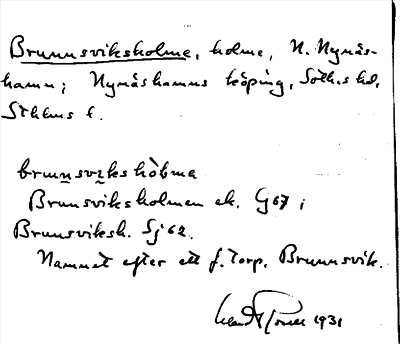 Brunnsviksholme, holme, N. Nynäs-
hamn; Nynäshamns köping, Soth.s hd,
Sthlms l.
brunsvikshòlma
Brunsviksholmen ek. G67;
Brunsviksh. Sj 62.
Namnet efter ett f. torp, Brunnsvik.
1931